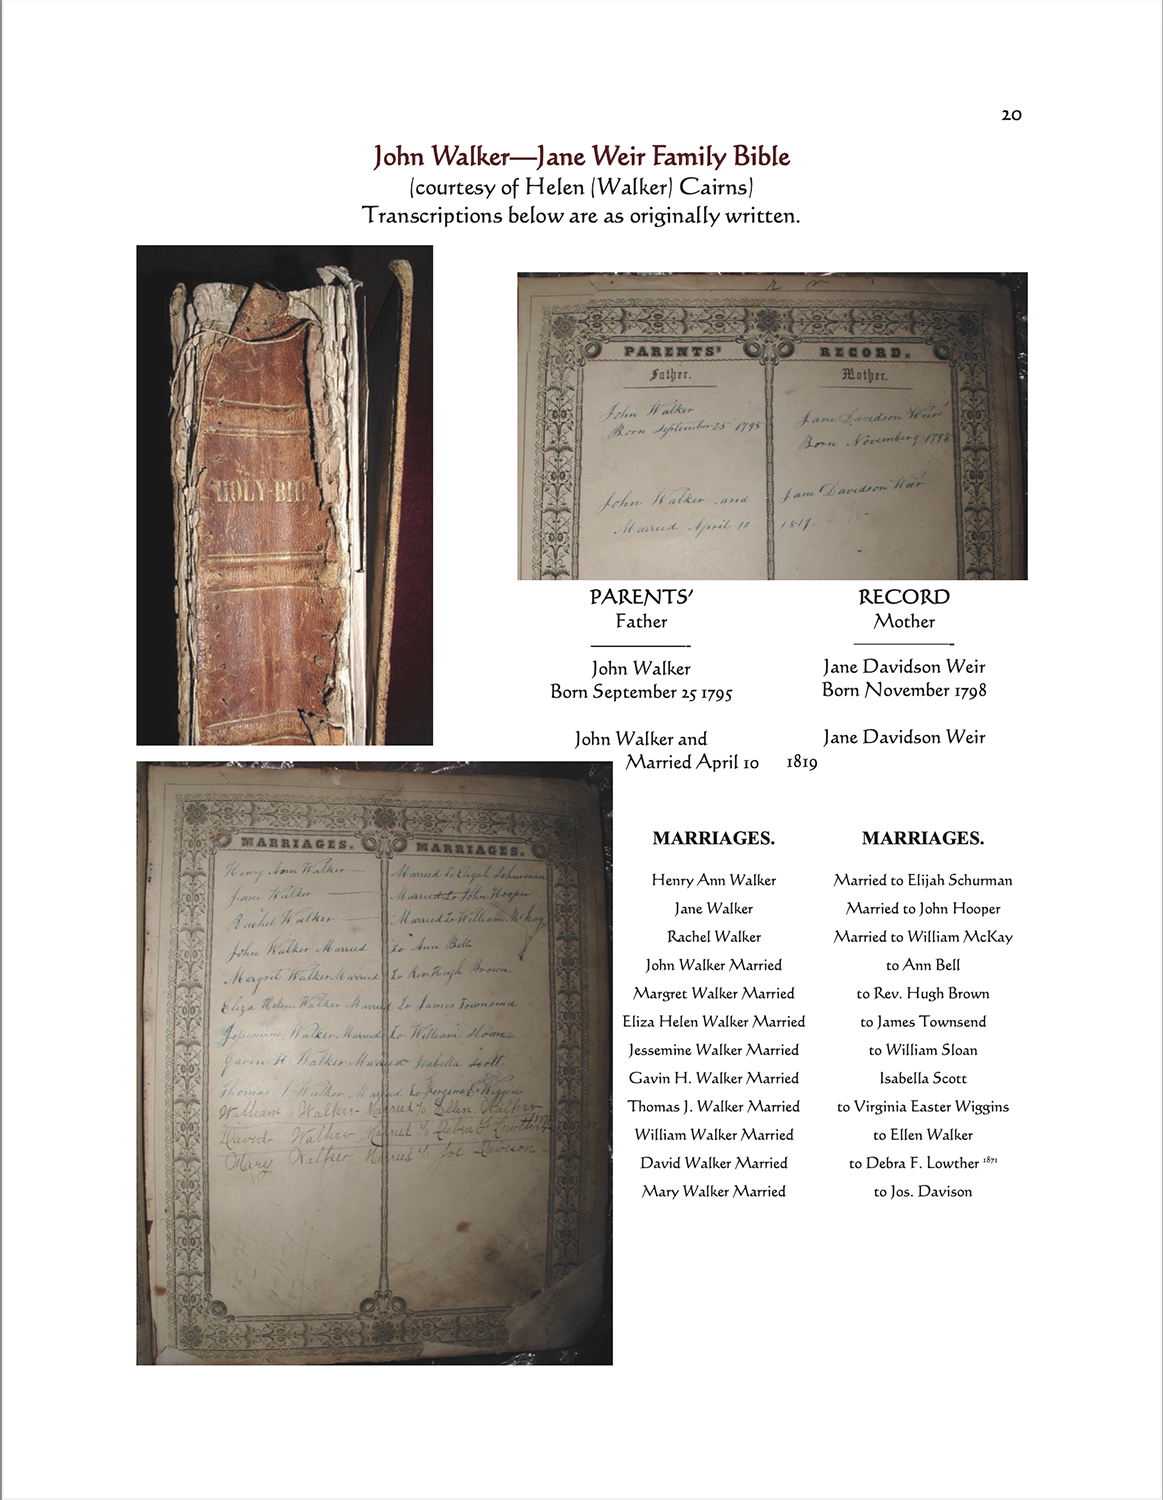 20
John Walker—Jane Weir Family Bible
(courtesy of Helen (Walker) Cairns)
Transcriptions below are as originally written.
HOLY-BIB
PARENTS' RECORD.
Father. Mother.
John Walker Jane Davidson Weir
Born September 25 1795 Born November 9 1798
John Walker and Jane Davidson Weir
Married April 10 1819.
PARENTS' RECORD
Father Mother
John Walker Jane Davidson Weir
Born September 25 1795 Born November 1798
John Walker and Jane Davidson Weir
Married April 10 1819
MARRIAGES. MARRIAGES.
Henry Ann Walker — Married to Elijah Schurman
Jane Walker — Married to John Hooper
Rachel Walker — Married to William McKay
John Walker Married to Ann Bell
Margret Walker Married to Rev Hugh Brown
Eliza Helen Walker Married to James Townsend
Walker Married to William Sloan
Gavin H. Walker Married Isabella Scott
Thomas J Walker Married to Wiggins
William Walker Married to Ellen Walker
David Walker Married to Debra F Lowther
Mary Walker Married to Davison
MARRIAGES. MARRIAGES.
Henry Ann Walker Married to Elijah Schurman
Jane Walker Married to John Hooper
Rachel Walker Married to William McKay
John Walker Married to Ann Bell
Margret Walker Married to Rev. Hugh Brown
Eliza Helen Walker Married to James Townsend
Jessemine Walker Married to William Sloan
Gavin H. Walker Married Isabella Scott
Thomas J. Walker Married to Virginia Easter Wiggins
William Walker Married to Ellen Walker
David Walker Married to Debra F. Lowther 1871
Mary Walker Married to Jos. Davison